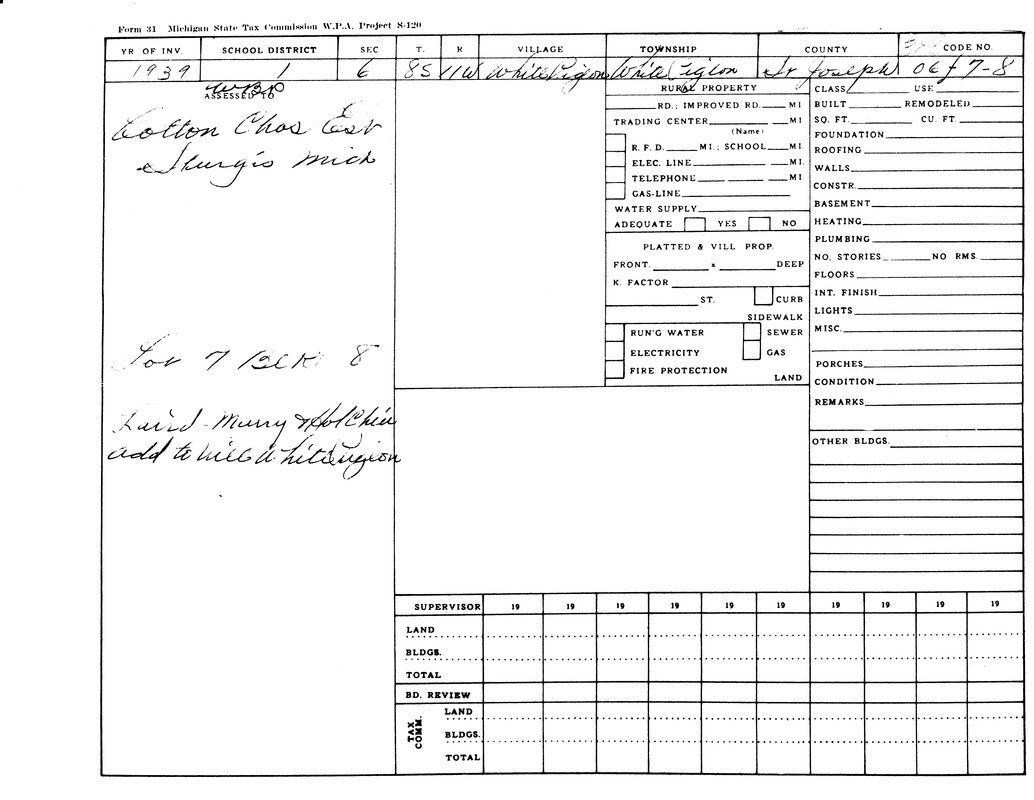 Form 31 Michigan State Tax Commission W.P.A. Project S-120
YR OF INV. SCHOOL DISTRICT SEC T. R VILLAGE TOWNSHIP COUNTY CODE NO.
1939 1 6 8S 11W White Pigeon White Pigeon St Joseph 06f 7-8
ASSESSED TO
WBP
Cotton Chas Est
Sturgis Mich
Lot 7 BLK 8
Laird-Murry &
add to Vill White Pigeon
RURAL PROPERTY
RD.; IMPROVED RD. MI
TRADING CENTER MI
(Name)
R. F. D. MI.; SCHOOL MI.
ELEC. LINE MI.
TELEPHONE MI.
GAS-LINE
WATER SUPPLY
ADEQUATE YES NO
PLATTED & VILL PROP.
FRONT. x DEEP
K. FACTOR
ST. CURB
SIDEWALK
RUN'G WATER SEWER
ELECTRICITY GAS
FIRE PROTECTION
LAND
CLASS USE
BUILT REMODELED
SQ. FT. CU. FT.
FOUNDATION
ROOFING
WALLS
CONSTR.
BASEMENT
HEATING
PLUMBING
NO. STORIES NO RMS.
FLOORS
INT. FINISH
LIGHTS
MISC.
PORCHES
CONDITION
REMARKS
OTHER BLDGS.
SUPERVISOR 19 19 19 19 19 19 19 19 19 19
LAND
BLDGS.
TOTAL
BD. REVIEW
TAX COMM.
LAND
BLDGS.
TOTAL